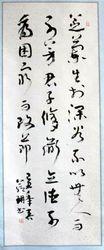 芝蘭生於深谷不以無人而
不芳君子修道立德不
為困窮而改節